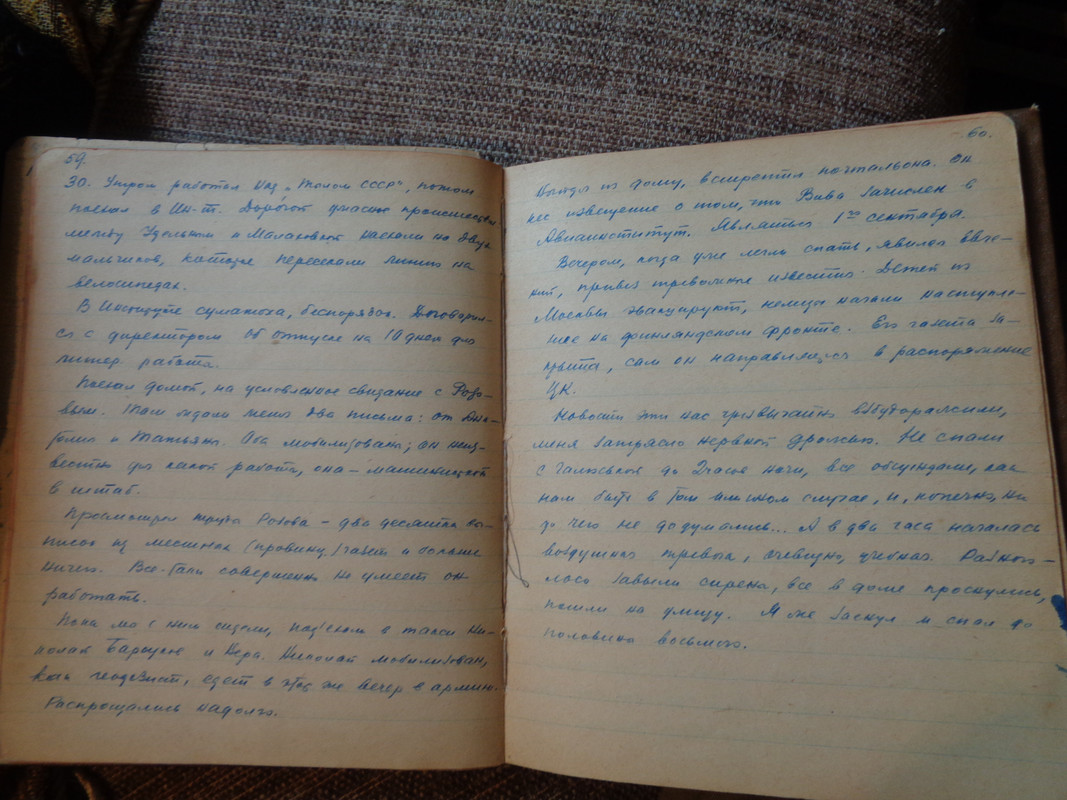 59.
30. Утром работал над „Толом СССР", потом
поехал в Ин-т. Дорогой ужасное происшествие
между Удельной и Малаховкой наехали на двух
мальчиков, которые пересекали линию на
велосипедах.
В Институте суматоха, беспорядок. Договорил-
ся с директором об отпуске на 10 дней для
литер. работы.
Поехал домой, на условленное свидание с Розо-
вым. Там ждали меня два письма: от Ана-
толия и Татьяны. Оба мобилизованы; он неиз-
вестно для какой работы, она – машинисткой
в штаб.
Просмотрел труды Розова – два десятка вы-
писок из местных (провинц.) газет и больше
ничего. Все-таки совершенно не умеет он
работать.
Пока мы с ним сидели, под'ехали в такси Ни-
колай Барсуков и Вера. Николай мобилизован,
как геодезист, едет в этот же вечер в армию.
Распрощались надолго.
60.
Выходя из дому, встретил почтальона. Он
нес извещение о том, что Вива зачислен в
Авиаинститут. Являться 1го сентября.
Вечером, когда уже легли спать, явился Евге-
ний, привез тревожные известия. Детей из
Москвы эвакуируют, немцы начали наступле-
ние на финляндском фронте. Его газета за-
крыта, сам он направляется в распоряжение
ЦК.
Новости эти нас чрезвычайно взбудоражили,
меня затрясло нервной дрожью. Не спали
с Галюськой до 2 часов ночи, все обсуждали, как
нам быть в том или ином случае, и, конечно, ни
до чего не додумались... А в два часа началась
воздушная тревога, очевидно, учебная. Разного-
лосо завыли сирены, все в доме проснулись,
пошли на улицу. Я же заснул и спал до
половины восьмого.